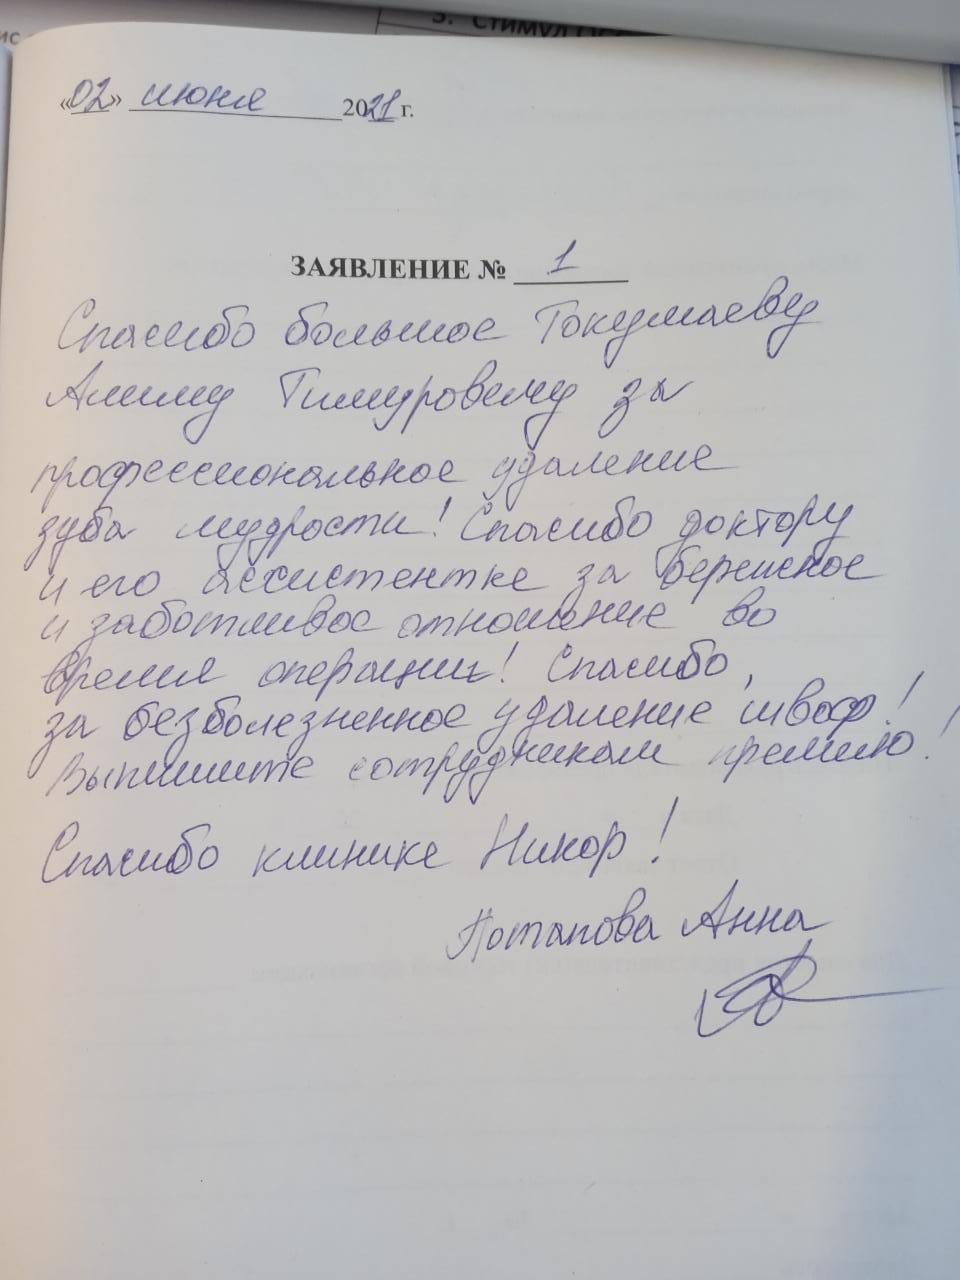 3. Стимул
«02» июня 2021 г.
ЗАЯВЛЕНИЕ № 1
Спасибо большое Токумаеву
Алиму Тимуровичу за
профессиональное удаление
зуба мудрости! Спасибо доктору
и его ассистентке за бережное
и заботливое отношение во
время операции! Спасибо,
за безболезненное удаление швов!
Выпишите сотрудникам премию!
Спасибо клинике Никор!
Потапова Анна